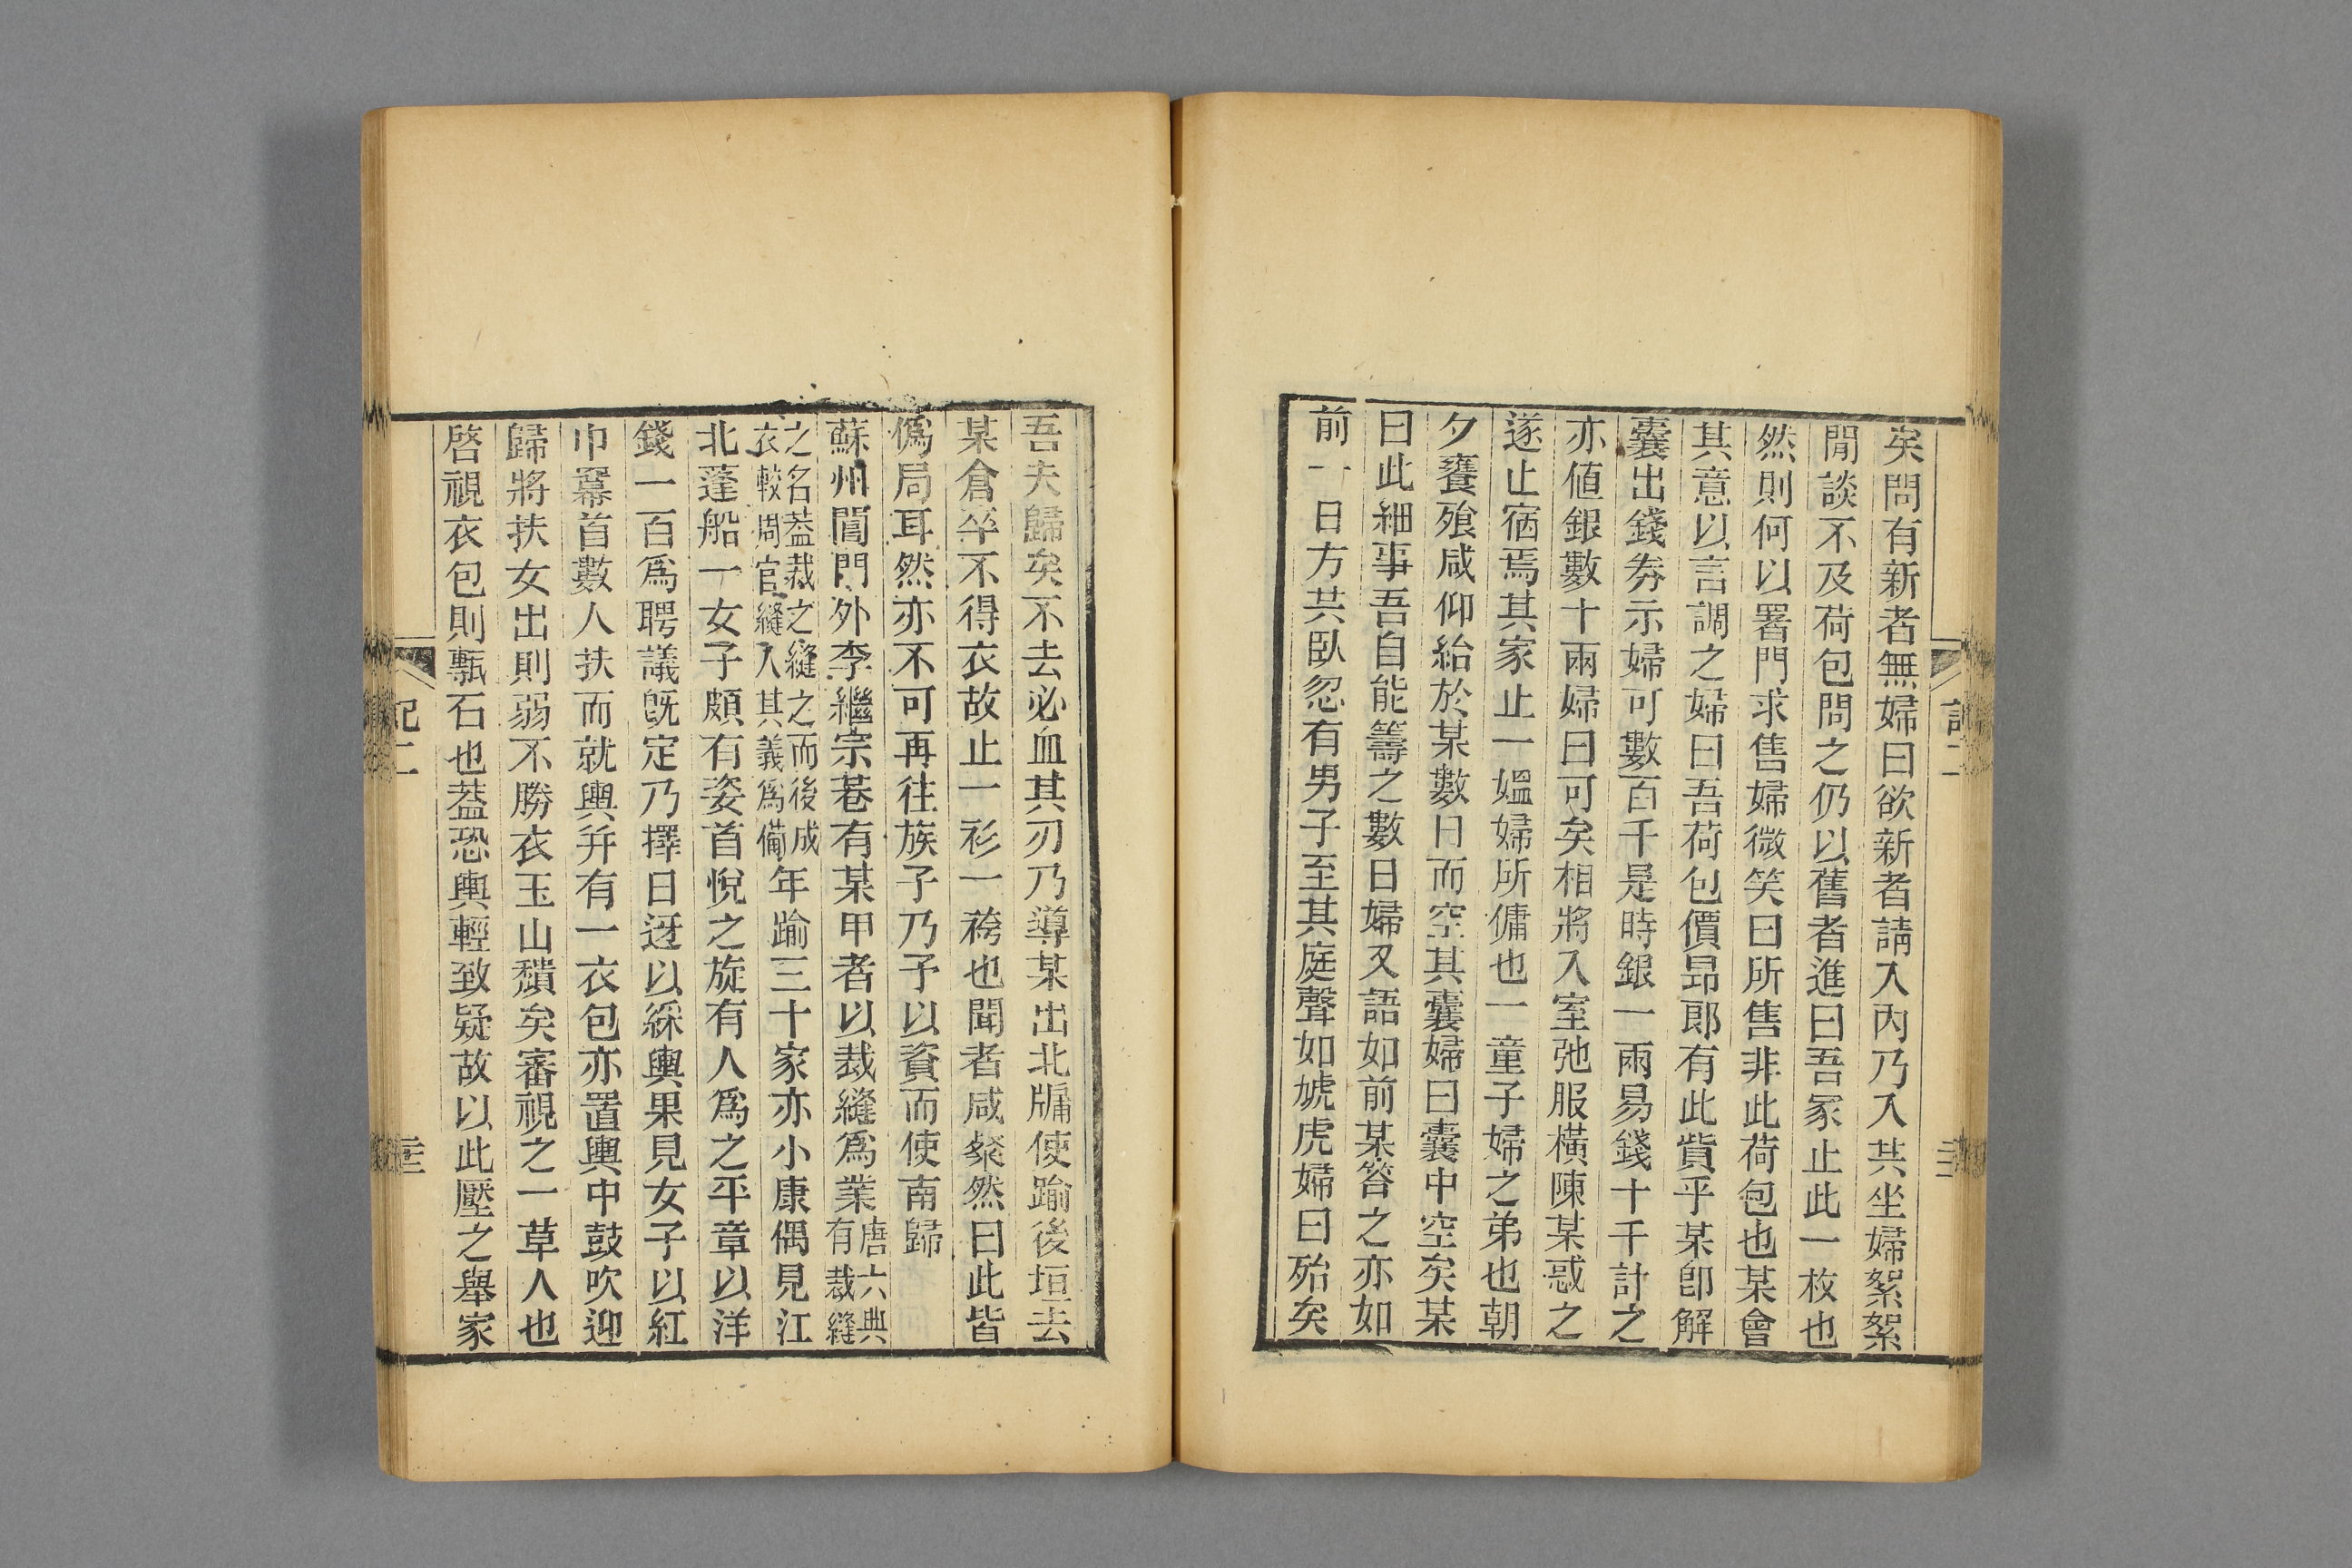 矣問有新者無婦曰欲新者請入內乃入共坐婦絮絮
閒談不及荷包問之仍以舊者進曰吾家止此一枚也
然則何以署門求售婦微笑曰所售非此荷包也某會
其意以言調之婦曰吾荷包價昻郎有此貲乎某卽解
囊出錢券示婦可數百千是時銀一兩易錢十千計之
亦値銀數十兩婦曰可矣相將入室弛服橫陳某惑之
遂止宿焉其家止一媼婦所傭也一童子婦之弟也朝
夕饔飧咸仰給於某數日而空其囊婦曰囊中空矣某
曰此細事吾自能籌之數日婦又語如前某答之亦如
前一日方共臥忽有男子至其庭聲如虓虎婦曰殆矣
吾夫歸矣不去必血其刃乃導某出北牖使踰後垣去
某倉卒不得衣故止一衫一袴也聞者咸粲然曰此皆
僞局耳然亦不可再往族子乃予以資而使南歸
蘇州閶門外李繼宗巷有某甲者以裁縫爲業唐六典有裁縫
之名葢裁之縫之而後成衣較周官縫人其義爲備年踰三十家亦小康偶見江
北蓬船一女子頗有姿首悅之旋有人爲之平章以洋
錢一百爲聘議旣定乃擇日迓以綵輿果見女子以紅
巾冪首數人扶而就輿幷有一衣包亦置輿中鼓吹迎
歸將扶女出則弱不勝衣玉山穨矣審視之一草人也
啓視衣包則甎石也葢恐輿輕致疑故以此壓之舉家
記二